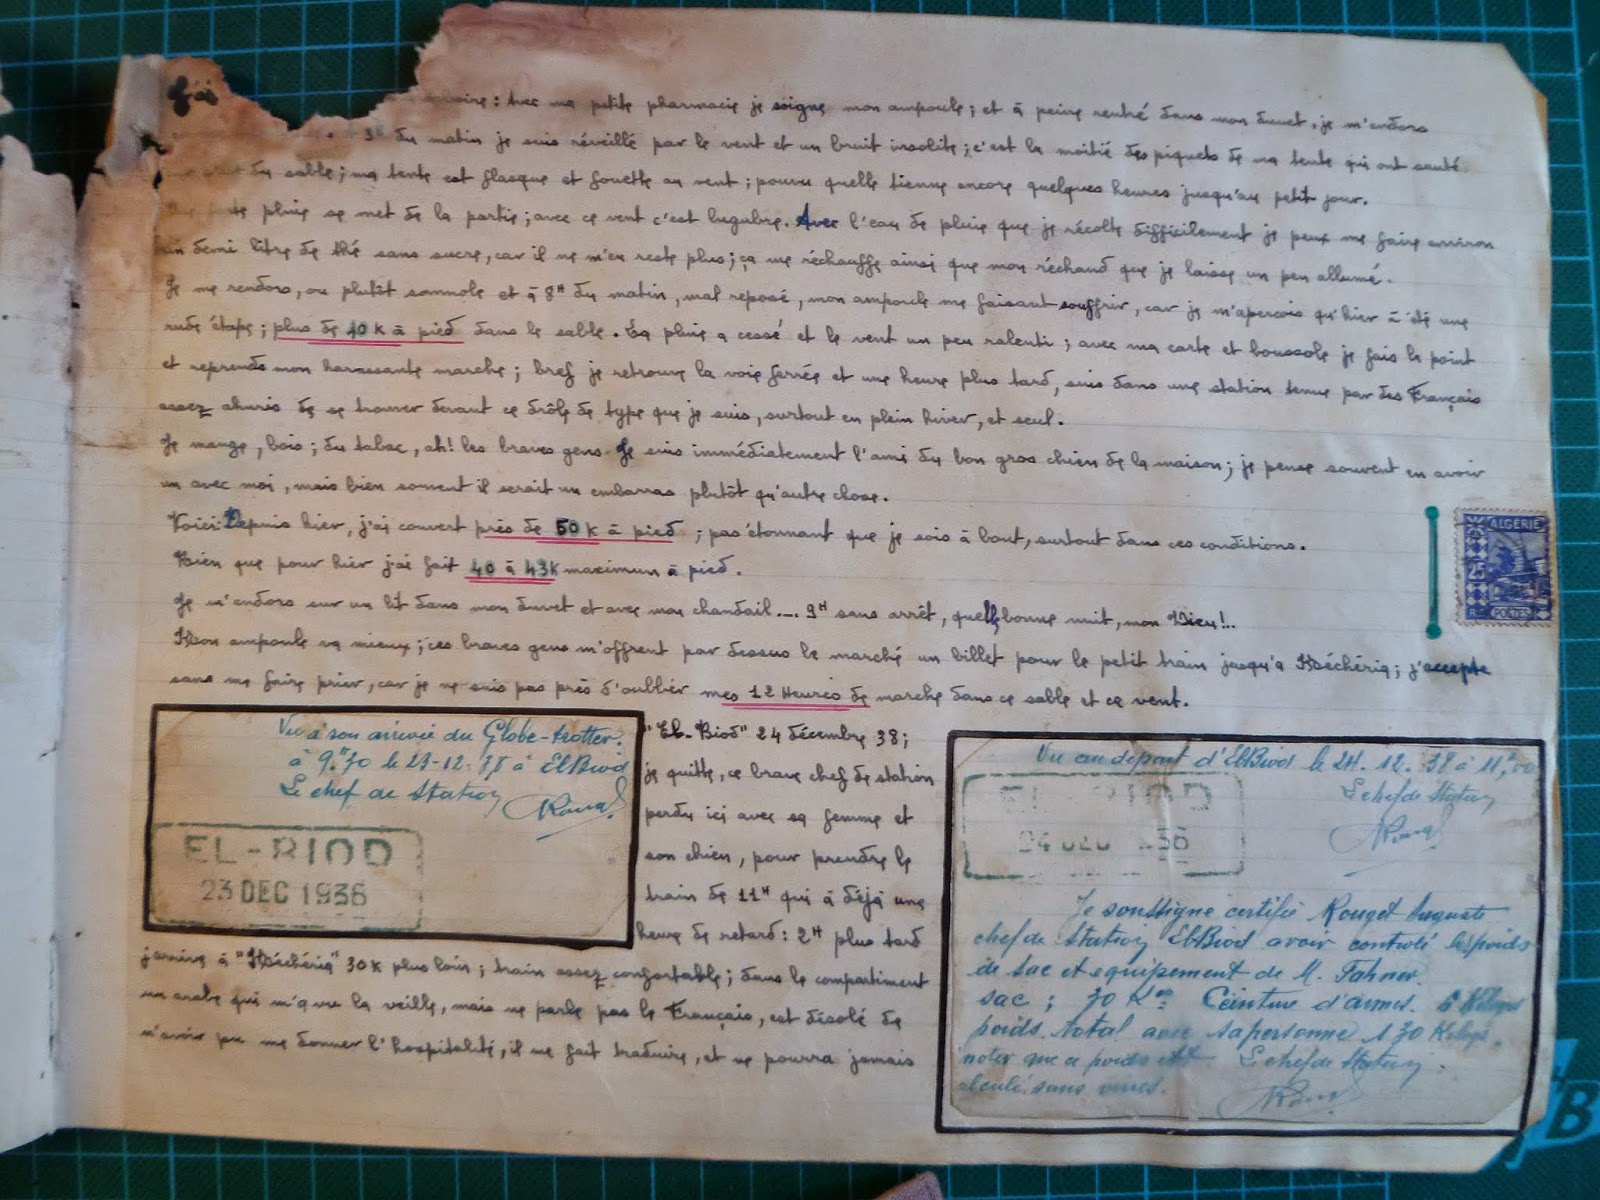 J'ai boire : Avec ma petite pharmacie je soigne mon ampoule ; et à peine rentré dans mon duvet, je m'endors
3H du matin je suis réveillé par le vent et un bruit insolite ; c'est la moitié des piquets de ma tente qui ont sauté
du sable ; ma tente est flasque et fouette au vent ; pourvu quelle tienne encore quelques heures jusqu'au petit jour.
pluie se met de la partie ; avec ce vent c'est lugubre. Avec l'eau de pluie que je récolte difficilement je peux me faire environ
un demi litre de thé sans sucre, car il ne m'en reste plus ; ça me réchauffe ainsi que mon réchaud que je laisse un peu allumé.
Je me rendors, ou plutôt somnole et à 8H du matin, mal reposé, mon ampoule me faisant souffrir, car je m'aperçois qu'hier à été une
rude étape ; plus de 40 K à pied dans le sable. La pluie a cessé et le vent un peu ralenti ; avec ma carte et boussole je fais le point
et reprends mon harassante marche ; bref je retrouve la voie ferrée et une heure plus tard, suis dans une station tenue par des Français
assez ahuris de se trouver devant ce drôle de type que je suis, surtout en plein hiver, et seul.
Je mange, bois ; du tabac, ah! les braves gens. Je suis immédiatement l'ami du bon gros chien de la maison ; je pense souvent en avoir
un avec moi, mais bien souvent il serait un embarras plutôt qu'autre chose.
Voici : Depuis hier, j'ai couvert près de 50 K à pied ; pas étonnant que je sois à bout, surtout dans ces conditions.
Bien que pour hier j'ai fait 40 à 43K maximum à pied.
Je m'endors sur un lit dans mon duvet et avec mon chandail .... 9H sans arrêt, quelle bonne nuit, mon Dieu!..
Mon ampoule va mieux ; ces braves gens m'offrent par dessus le marché un billet pour le petit train jusqu'a Méchéria ; j'accepte
sans me faire prier, car je ne suis pas près d'oublier mes 12 Heures de marche dans ce sable et ce vent.
ALGÉRIE
25
25
R F
POSTES
Vu à son arrivée du Globe-trotter.
à 9H30 le 23-12-38 à El Biod
Le chef de Station
EL-BIOD
23 DEC 1938
"El-Biod" 24 décembre 38 ;
je quitte, ce brave chef de station
perdu ici avec sa femme et
son chien, pour prendre le
train de 11H qui à déjà une
heure de retard : 2H plus tard
j'arrive à "Méchéria" 30K plus loin ; train assez confortable ; dans le compartiment
un arabe qui m'a vu la veille, mais ne parle pas le Français, est désolé de
n'avoir pu me donner l'hospitalité, il me fait traduire, et ne pourra jamais
Vu au départ d'El Biod le 24. 12. 38 à 11H,00
Le chef de Station
EL-BIOD
24 DEC 38
Je soussigne certifie Rouget Auguste
chef de Station El Biod avoir contrôlé le poids
de sac et equipement de M. Fahner.
sac ; 30 Kos Ceinture d'armes. 5 Kilogs
poids. total avec sa personne 130 Kilogs.
noter que ce poids est Le chef de Station.
calculé sans vivres.